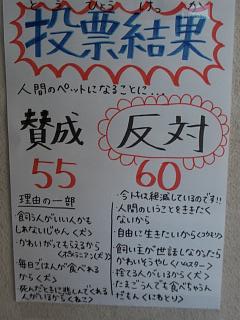 とうひょうけっか
投票結果
人間のペットになることに…
賛成
55
反対
60
理由の一部
・飼う人がいい人かも
しれないじゃん
・かわいがってもらえるから
・毎日ごはんが食べれ
るから
・死んだときに悲しんでくれる
人がいるから
・今は絶滅しているのです!!
・人間のいうことをききたく
ないから
・自由に生きたいから
・飼い主が世話しなかったら
かわいそうやし
・捨てる人がいるから
・たまごうんでも食べちゃうん
だもん